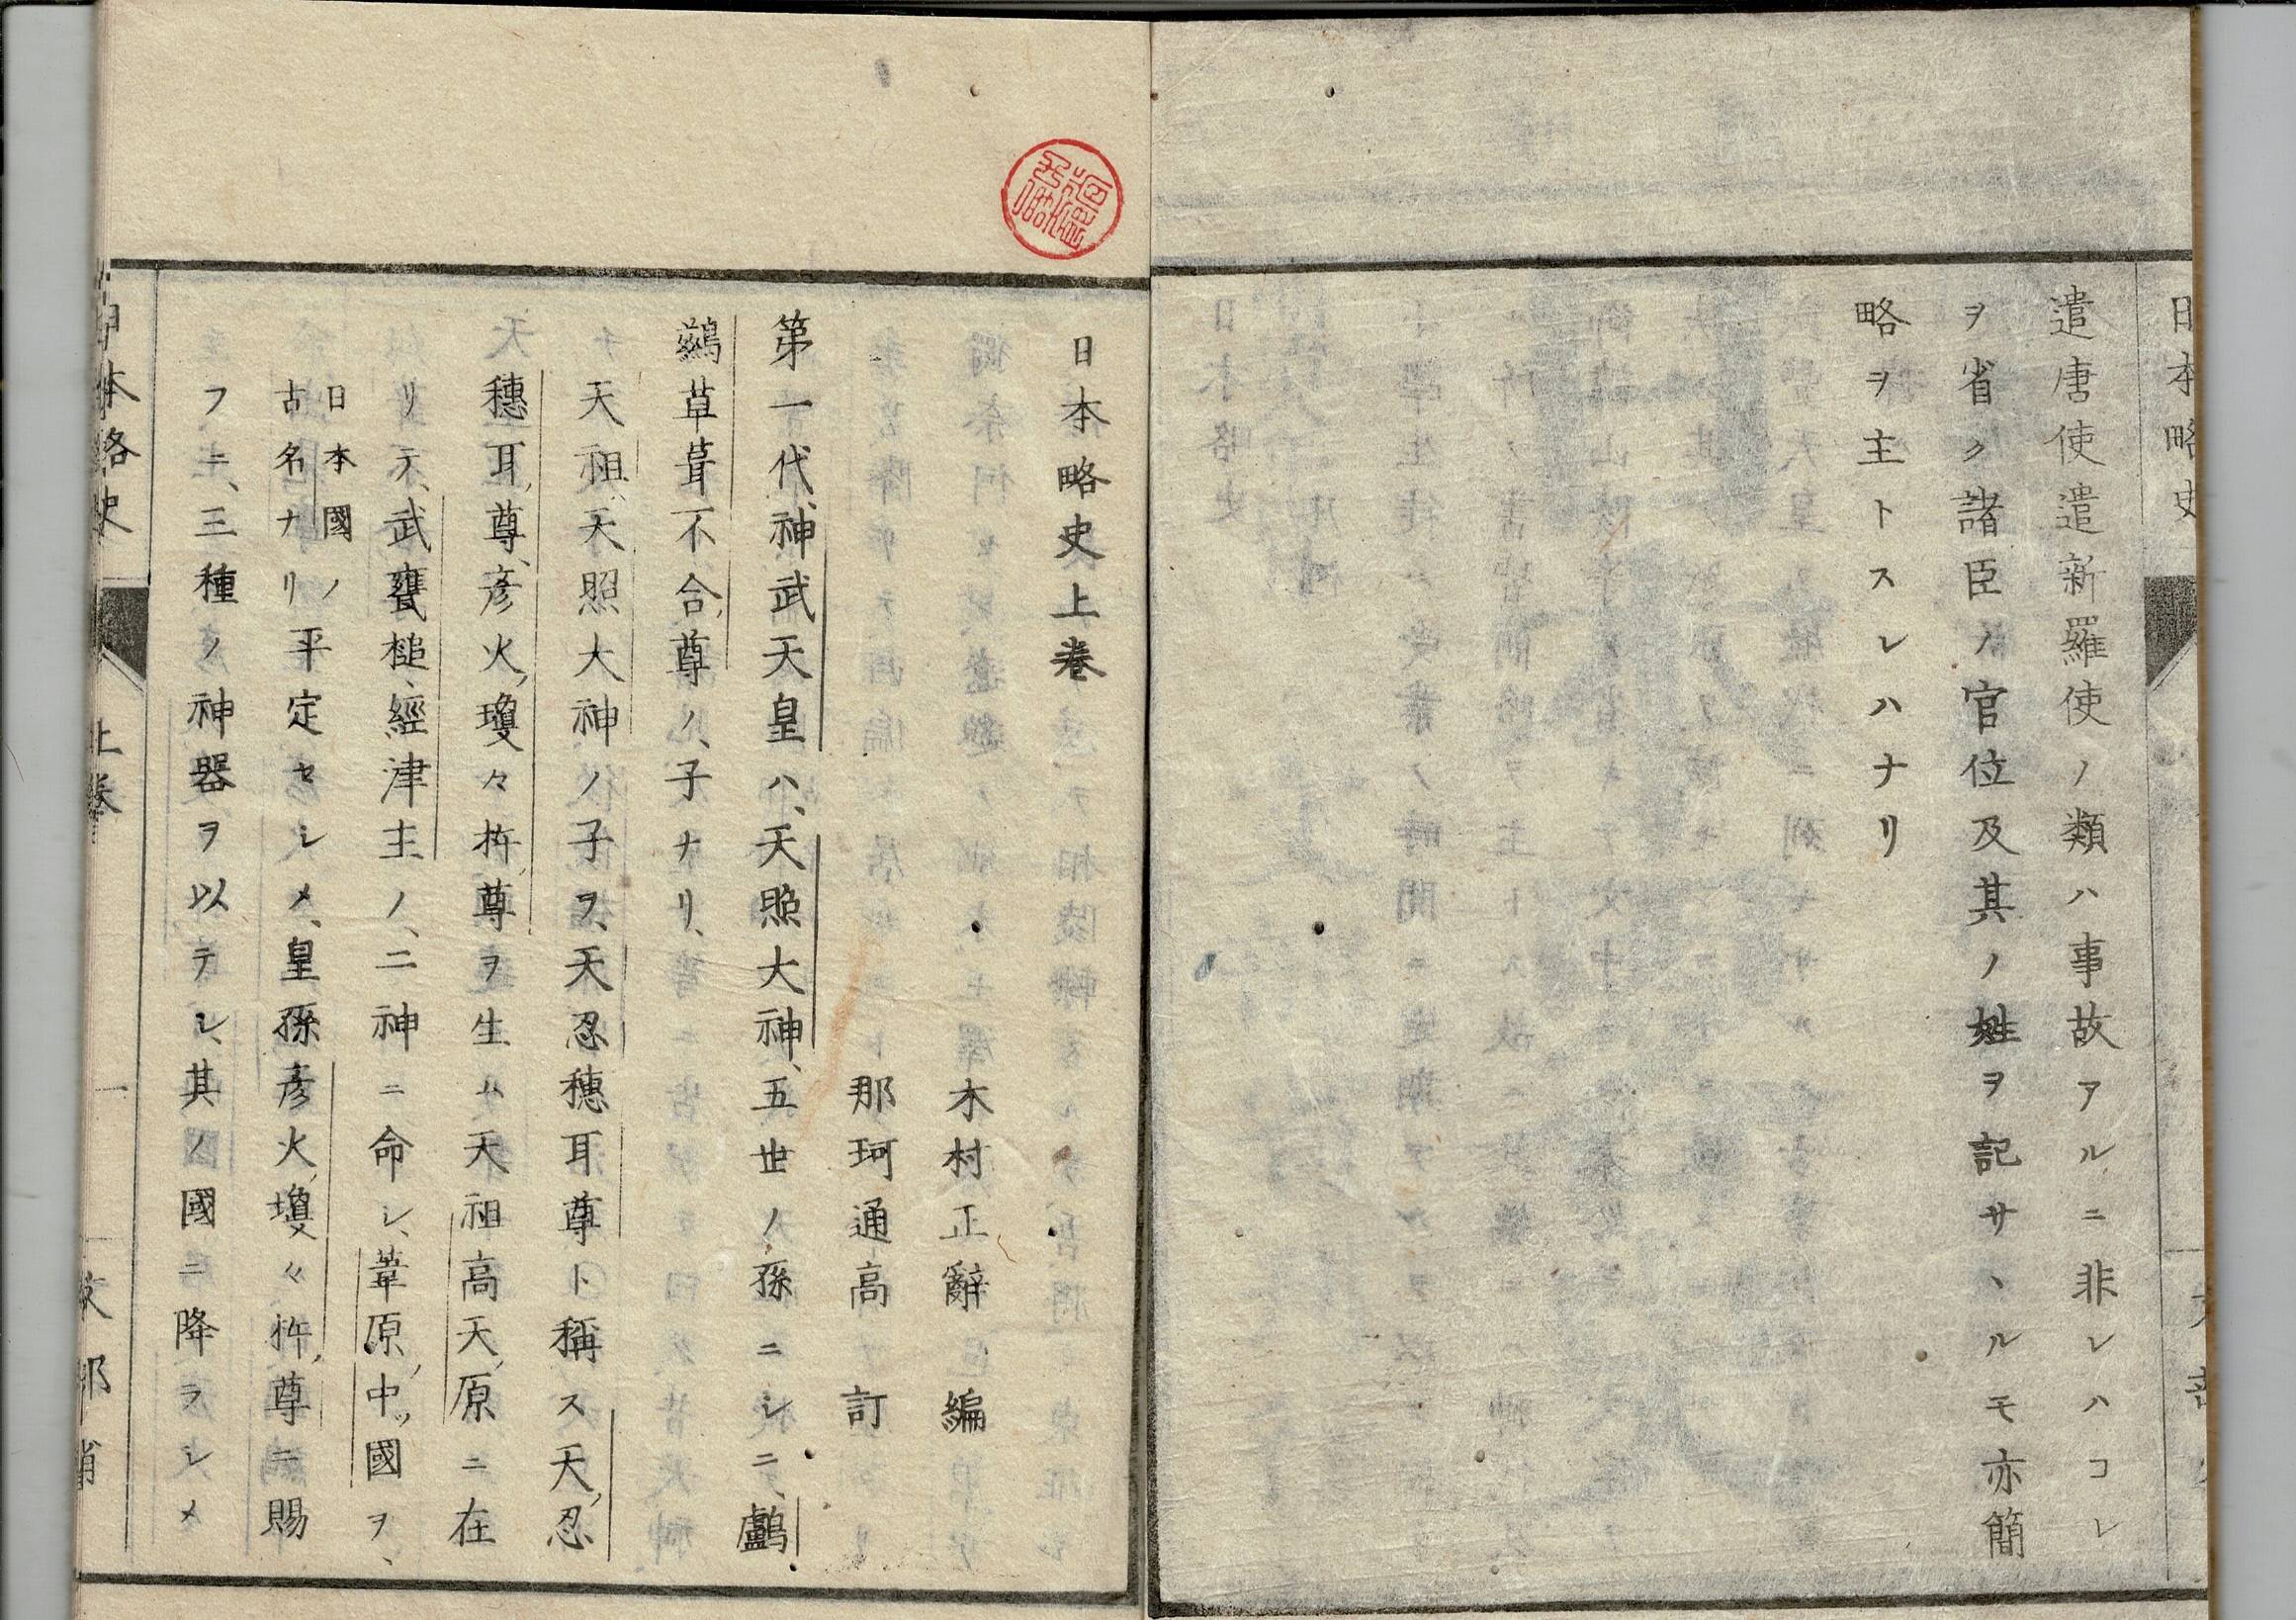 遣唐使遣新羅使ノ類ハ事故アルニ非レハコレ
ヲ省ク諸臣ノ官位及其ノ姓ヲ記サヽルモ亦簡
略ヲ主トスレハナリ
日本略史上卷
木村正辭 編
那珂通高 訂
第一代、神武天皇ハ、天照大神、五世ノ孫ニシニ、鸕
鷀草葺不合尊ノ、子ナリ、
天祖、天照大神ノ子ヲ、天忍穗耳尊ト稱ス天忍
穗耳尊、彥火瓊々杵尊ヲ生ム天祖高天原ニ在
リテ、武甕槌、經津主ノ、二神ニ命シ、葦原中國ヲ、
日本國ノ
古名ナリ
平定セシメ、皇孫彥火瓊々杵尊ニ賜
フニ、三種ノ神器ヲ以テシ、其ノ國ニ降ラシメ
日本略史
上卷
一